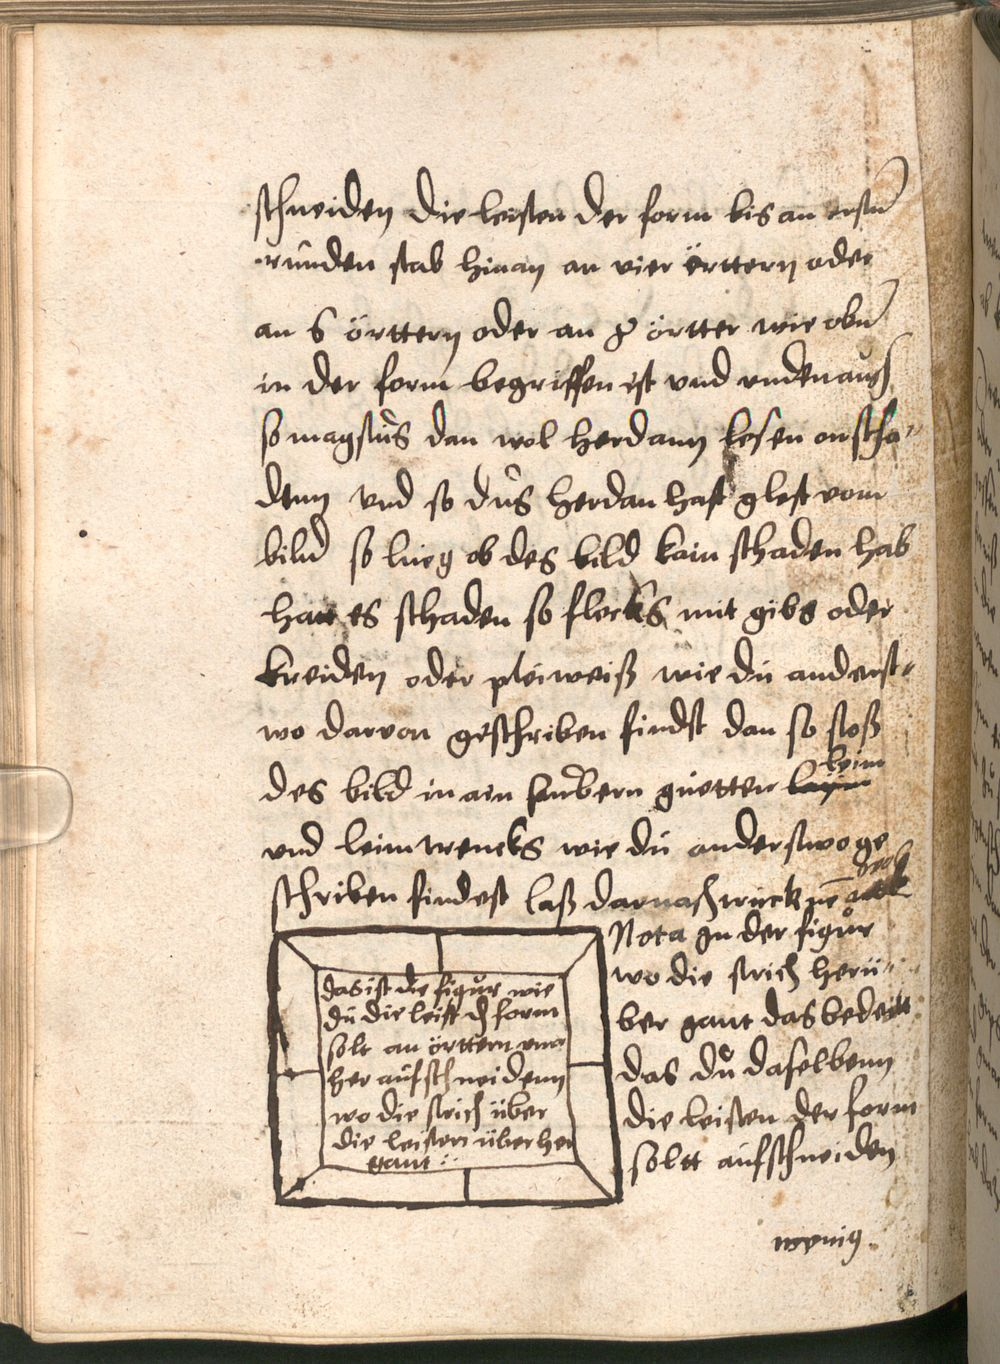 schneiden die leisten der form bis an ersten
runden stab hinan an vier örttern oder
an 6 örttern oder an 8 örtter wie oben
in der form begriffen ist vnd vnden auch
so magstus dan wol herdann lesen on scha-
denn vnd so dus herdan hast glest vom
bild so lueg ob des bild kain schaden hab
hatt es schaden so flecks mit gibs oder
kreiden oder pleiweiß wie du anderst-
wo darvon geschriben findst dan so stoß
des bild in ain saubern guetten leim
vnd leimtrencks wie du anderstwo ge
schriben findest laß darnach trücknen
Nota In der figur
wo die strich herü-
ber gant das bedeitt
das du daselbenn
die leisten der form
soltt aufschneiden
das ist die figur wie
du die leist der form
solt an örttern vmb
her aufschneidenn
wo die strich über
die leisten überher
gant
wenig